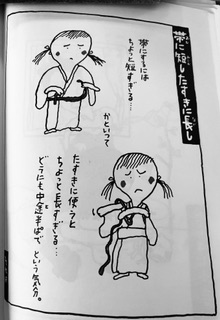 帯に短したすきに長し
帯にするには
ちょっと短すぎる…
かといって
たすきに使うと
ちょっと長すぎる…
どうにも中途半ぱで
という気分。